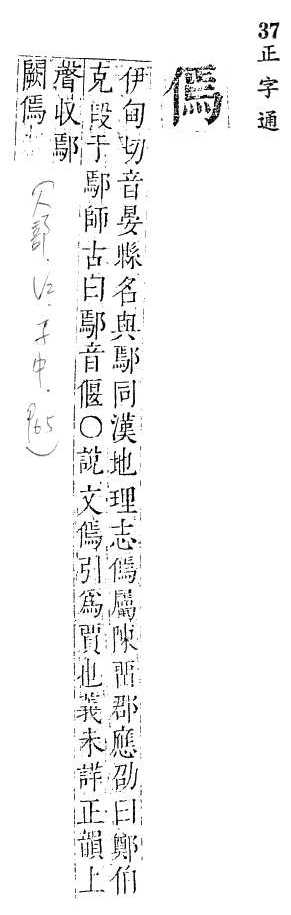 37
正字通
傿
伊甸切音晏縣名與鄢同漢地理志傿屬陳畱郡應劭曰鄭伯
克段于鄢師古曰鄢音偃○說文傿引爲賈也義未詳正韻上
聲收鄢
闕傿
(人部. V2. 子中. P65)